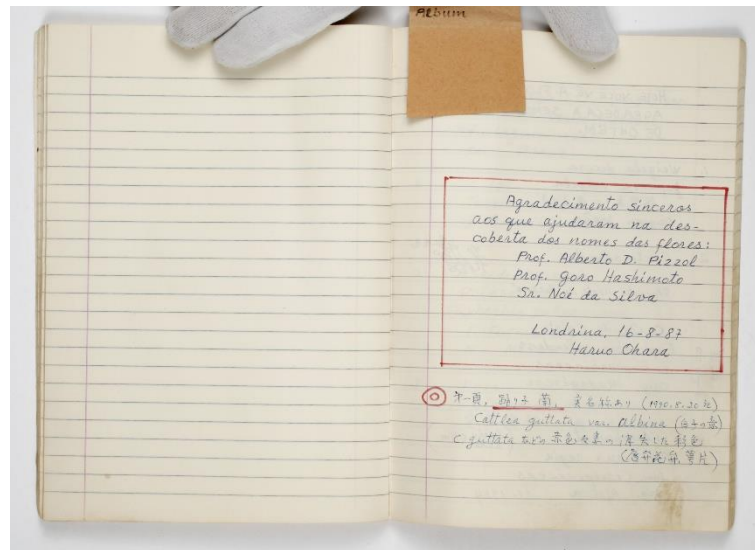 Album
Agradecimento sinceros
aos que ajudaram na des-
coberta dos nomes das flores:
Prof. Alberto D. Pizzol
Prof. Goro Hashimoto
Sr. Noé da Silva
Londrina, 16-8-87
Haruo Ohara
(1990.8.30
Cattlea guttata var. Albina
C. guttata